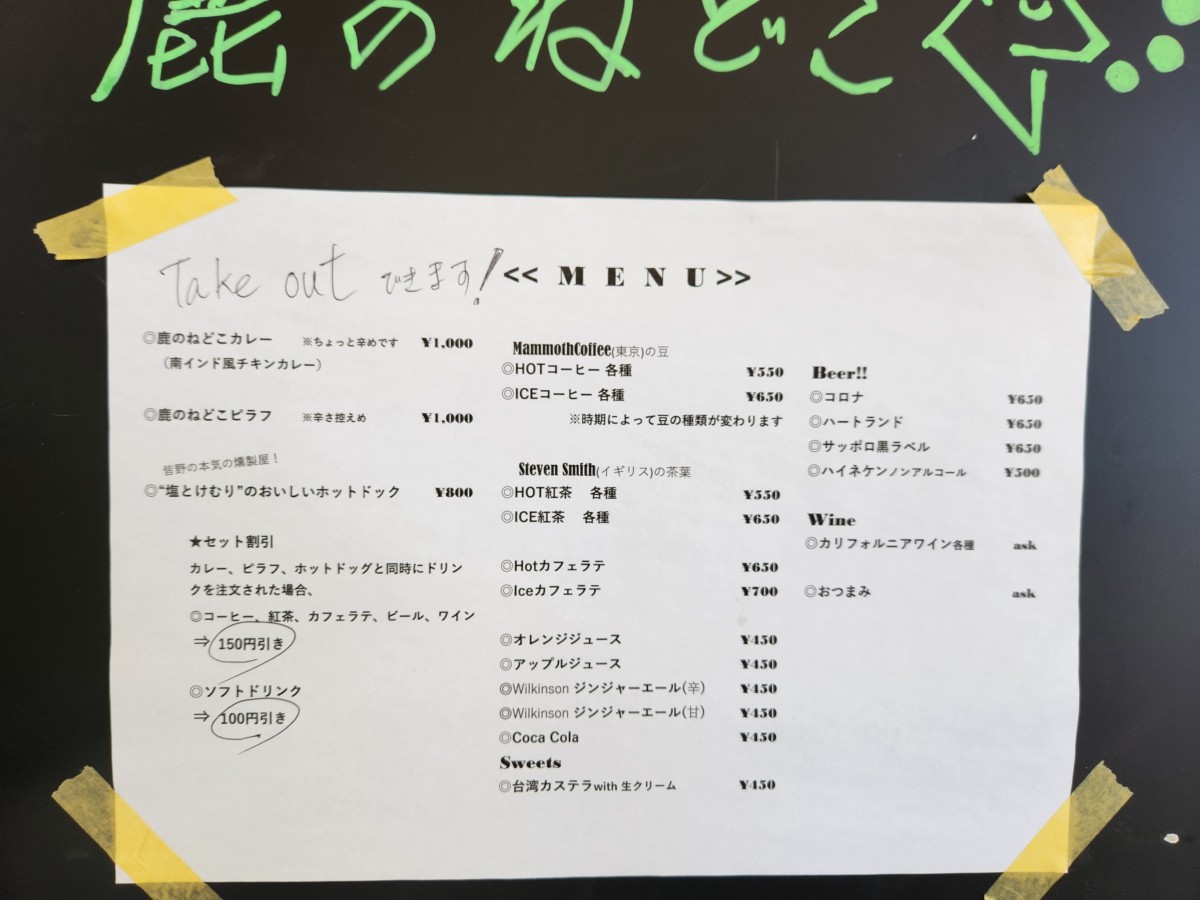 鹿のねどこ
Take out できます!
<< MENU >>
◎鹿のねどこカレー ※ちょっと辛めです ¥1,000
（南インド風チキンカレー）
◎鹿のねどこピラフ ※辛さ控えめ ¥1,000
皆野の本気の燻製屋！
◎“塩とけむり”のおいしいホットドック ¥800
★セット割引
カレー、ピラフ、ホットドッグと同時にドリン
クを注文された場合、
◎コーヒー、紅茶、カフェラテ、ビール、ワイン
⇒ 150円引き
◎ソフトドリンク
⇒ 100円引き
MammothCoffee(東京)の豆
◎HOTコーヒー 各種 ¥550
◎ICEコーヒー 各種 ¥650
※時期によって豆の種類が変わります
Steven Smith(イギリス)の茶葉
◎HOT紅茶 各種 ¥550
◎ICE紅茶 各種 ¥650
◎Hotカフェラテ ¥650
◎Iceカフェラテ ¥700
◎オレンジジュース ¥450
◎アップルジュース ¥450
◎Wilkinson ジンジャーエール(辛) ¥450
◎Wilkinson ジンジャーエール(甘) ¥450
◎Coca Cola ¥450
Sweets
◎台湾カステラwith 生クリーム ¥450
Beer!!
◎コロナ ¥650
◎ハートランド ¥650
◎サッポロ黒ラベル ¥650
◎ハイネケンノンアルコール ¥500
Wine
◎カリフォルニアワイン各種 ask
◎おつまみ ask